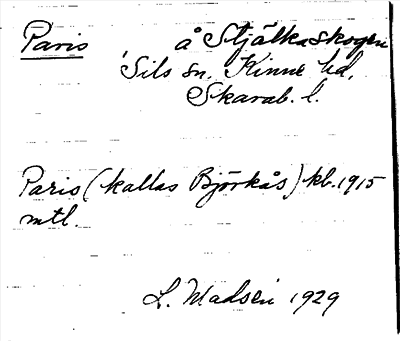 Paris å Stjälkaskogen
Sils sn. Kinne hd.
Skarab. l.
Paris (kallas Björkås) kb. 1915
mtl.
L. Madsen 1929